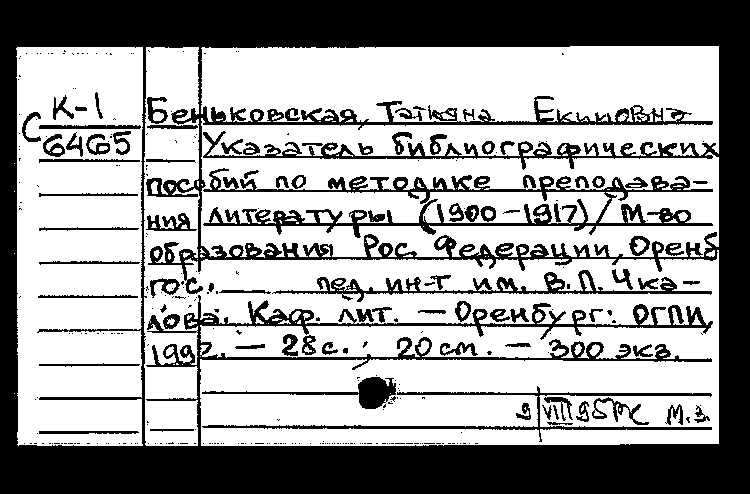 К-1
С 6465
Беньковская, Татьяна Екимовна
Указатель библиографических
пособий по методике преподава-
ния литературы (1900-1917) / М-во
образования Рос. Федерации, Оренб
гос. пед. ин-т им. В.П. Чка-
лова. Каф. лит. - Оренбург: ОГПИ,
199 . - 28 с. ; 20 см. - 300 экз.
9 VIII 95 М.З.